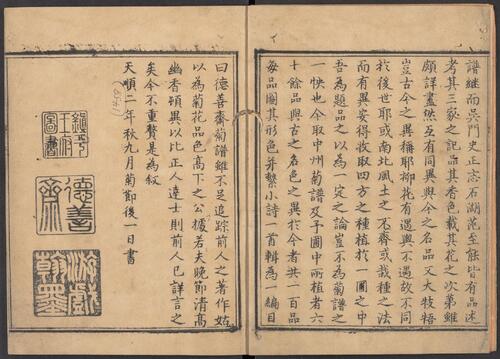 譜繼而吳門史正志石湖范至能皆有品述
考其三家之記品其香色載其花之次第雖
頗詳盡然互有同異與今之名品又大牴牾
豈古今之異稱耶抑花有遇與不遇故不同
於後世耶或南北風土之不齊或栽種之法
而有異安得收取四方之種植於一圃之中
吾為題品之以為一定之論豈不為菊譜之
一快也今取中州菊譜及予圃中所植者六
十餘品與古之名色之異於今者共一百品
每品圖其形色并繫小詩一首輯為一編目
曰德善齋菊譜雖不足追踪前人之著作姑
以為菊花品色高下之公據若夫晚節清高
幽香頴異以比正人達士則前人已詳言之
矣今不重贅是為敘
天順二年秋九月菊節後一日書
(1458)
鎮平王府圖書
德善齋
游戲翰墨